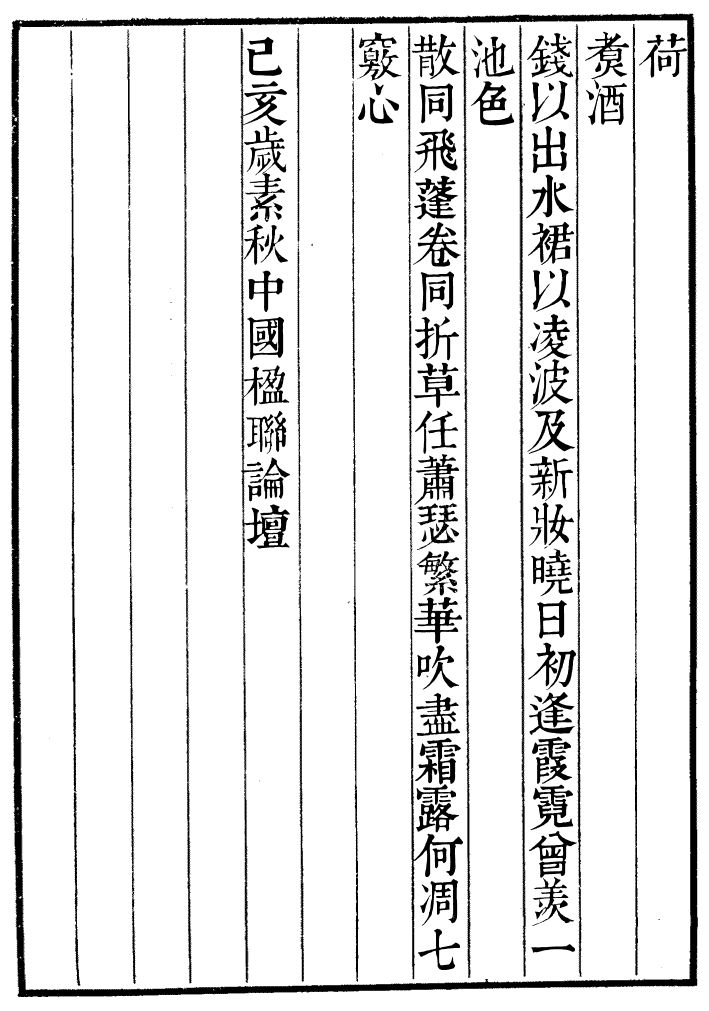 荷
煑酒
錢以出水裙以凌波及新妝曉日初逢霞霓曾羨一
池色
散同飛蓬卷同折草任蕭瑟繁華吹盡霜露何凋七
竅心
己亥歲素秋中國楹聯論壇